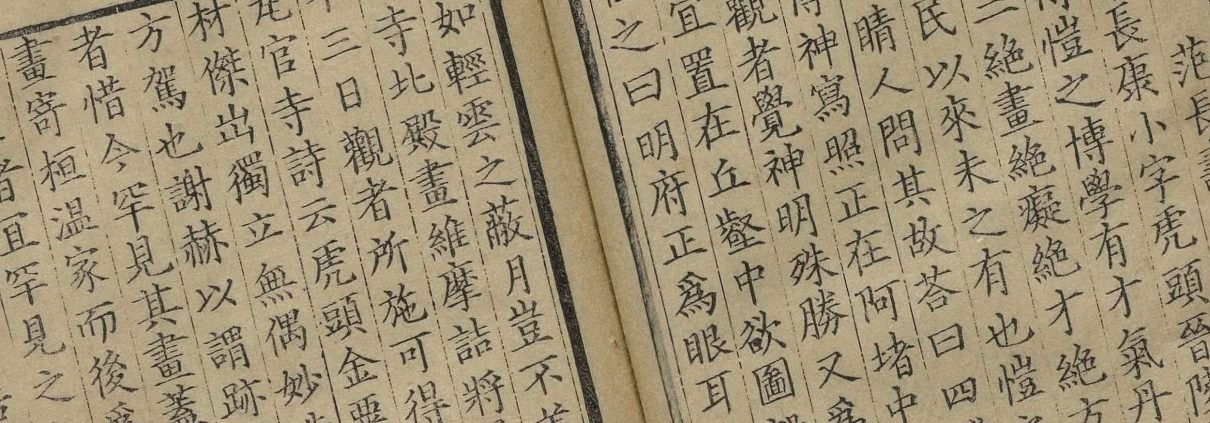 范長
長康小字虎頭晉陵
愷之博學有才氣丹
三絕畫絕癡絕才絕方
民以來未之有也愷
睛人問其故荅曰四
神寫照正在阿堵中
觀者覺神明殊勝又爲
宜置在丘壑中欲圖
之曰明府正爲眼耳
如輕雲之蔽月豈不
寺北殿畫維摩詰將
三日觀者所施可得
官寺詩云虎頭金粟
材傑出獨立無偶妙
方駕也謝赫以謂跡
者惜今罕見其畫蓋
畫寄桓温家而後
者且罕見之